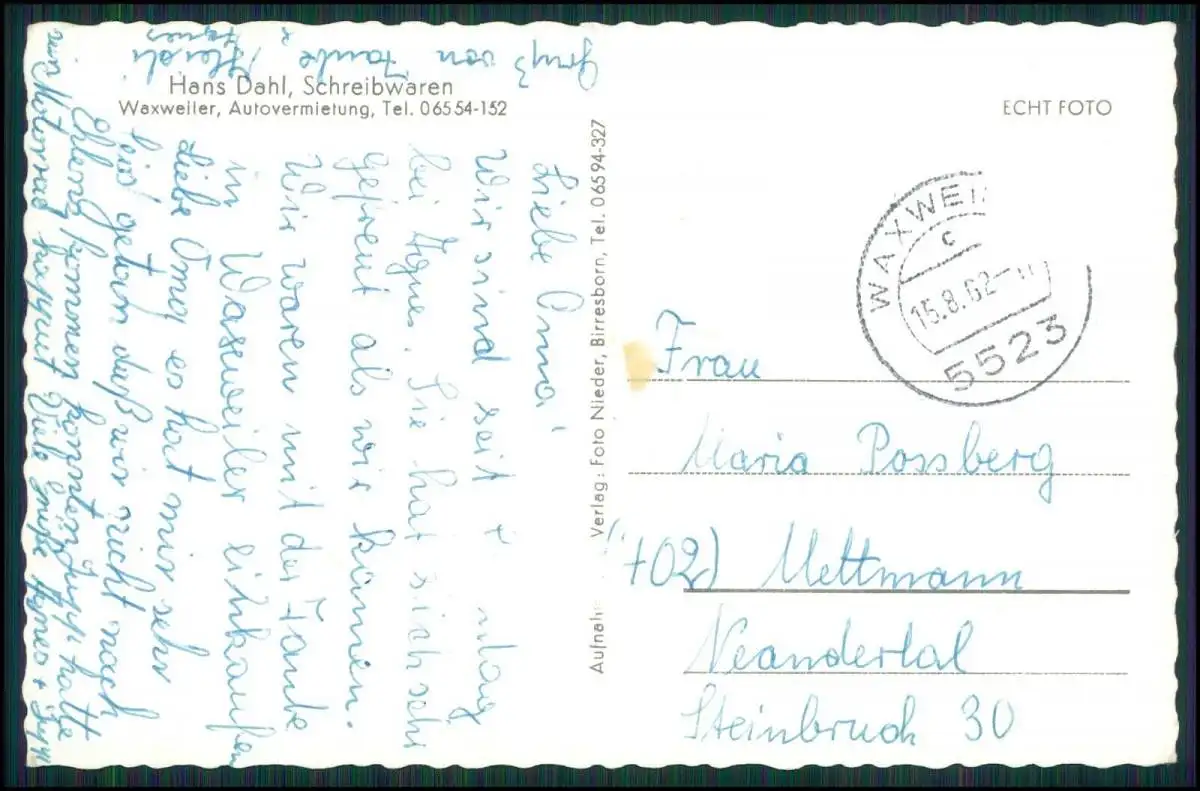 Hans Dahl, Schreibwaren
Waxweiler, Autovermietung, Tel. 06554-152
ECHT FOTO
Verlag: Foto Nieder, Birresborn, Tel. 06594-327
WAXWEI
c
15.8.62
5523
Liebe Oma
Wir sind seit
bei Agnes. Sie hat sich sehr
gefreut als wir kamen.
Wir waren mit der Tante
in Waxweiler einkaufen
Liebe Oma es hat mir sehr
leid getan daß wir nicht nach
kommen konnten. Jupp hatte
sein Motorrad kaputt Viele Grüße Agnes +
Gruß von Tante
Agnes
Heidi
Frau
Maria Possberg
(402) Mettmann
Neandertal
Steinbruch 30